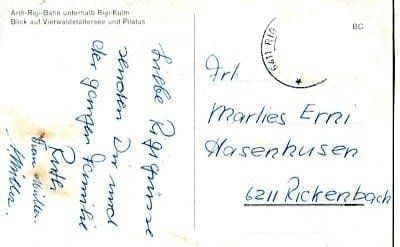 Arth-Rigi-Bahn unterhalb Rigi-Kulm
Blick auf Vierwaldstättersee und Pilatus
BC
6411 RIG
Liebe Rigigrüsse
senden Dir und
der ganzen Familie
Ruth
Frau Müller
A. Müller.
Frl.
Marlies Erni
Hasenhusen
6211 Rickenbach